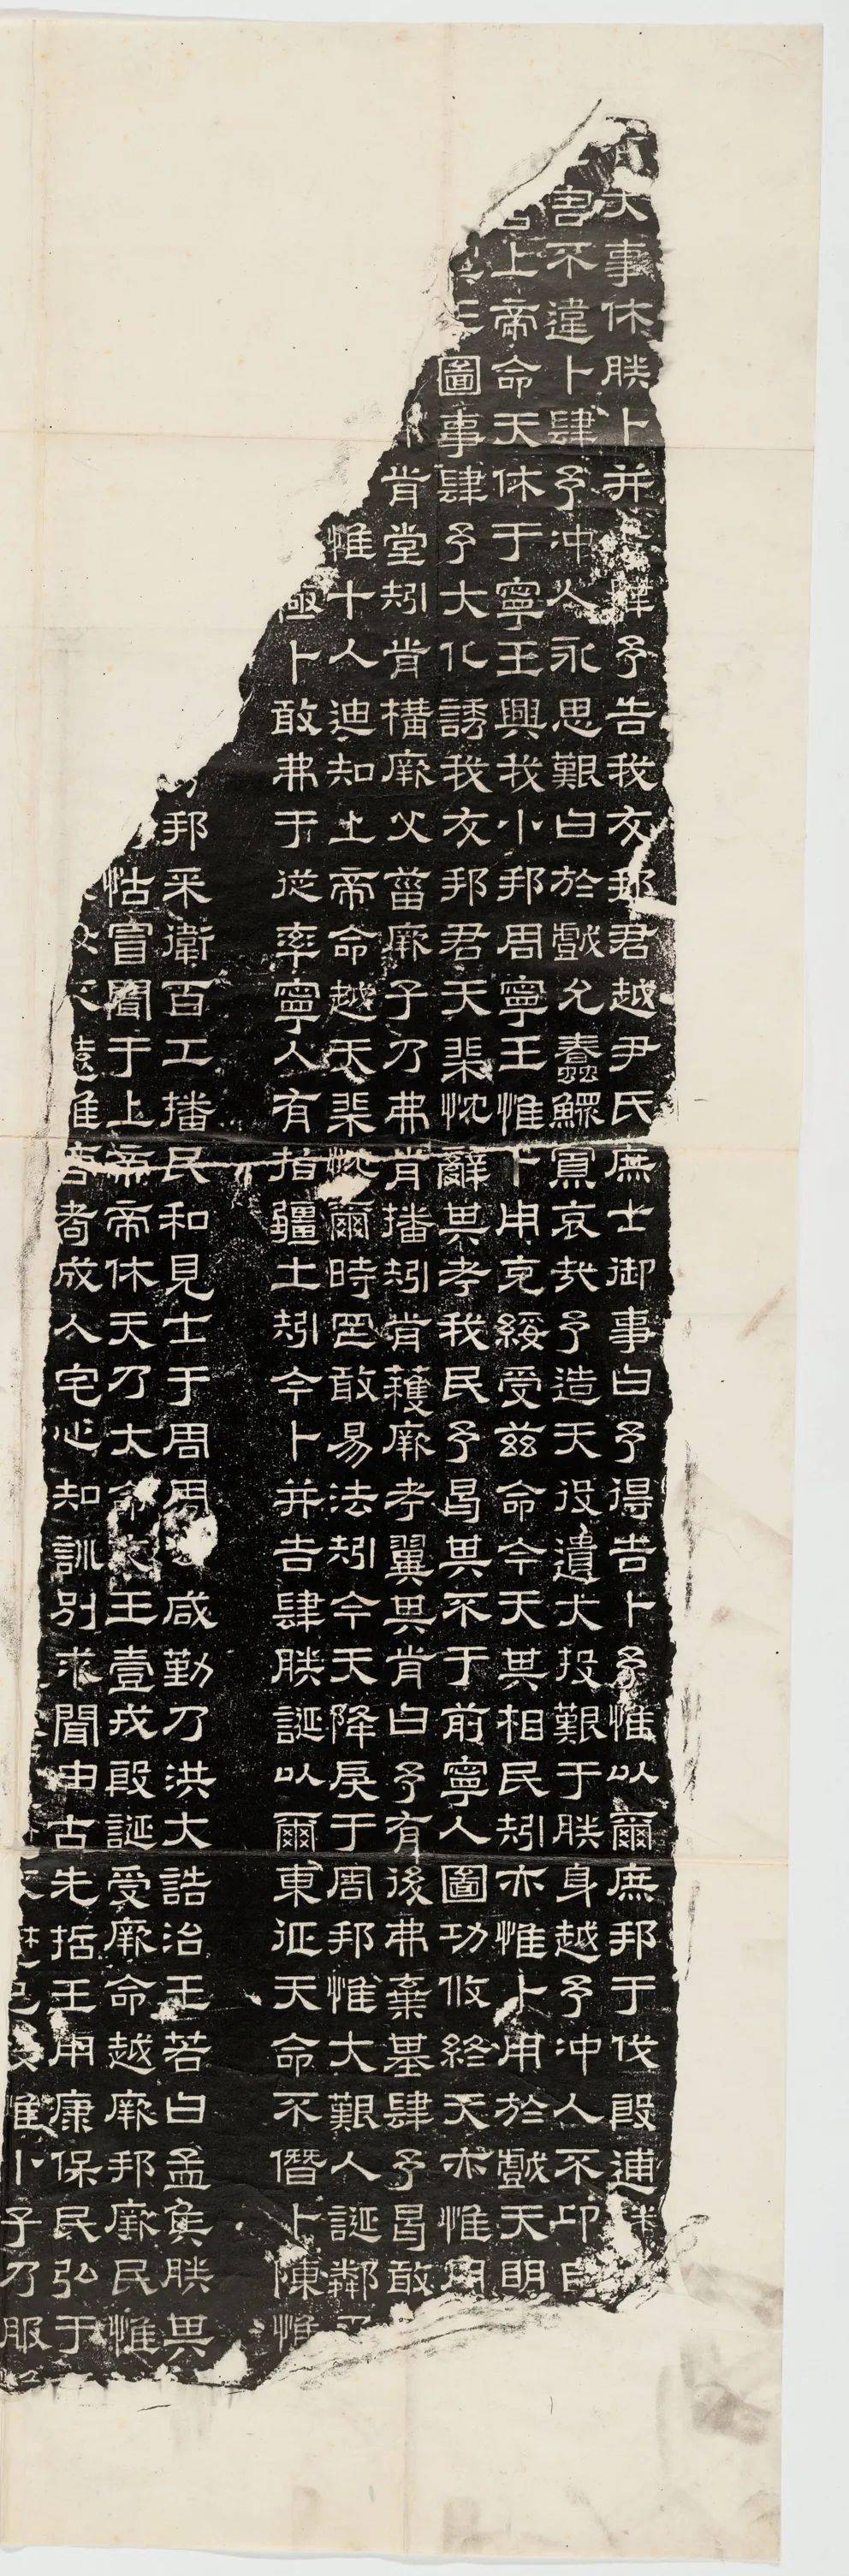 大事休朕卜并予告我友邦君越尹氏庶士御事曰予得吉卜予惟以爾庶邦于伐殷逋
害不違卜肆予沖人永思艱曰於戲允蠢鰥寡哀哉予造天役遺大投艱于朕身越予沖人不卬自
上帝命天休于寧王興我小邦周寧王惟卜用克綏受茲命今天其相民矧亦惟卜用於戲天明
王圖事肆予大化誘我友邦君天棐忱辭其考我民予曷其不于前寧人圖功攸終天亦惟用
肯堂矧肯構厥父菑厥子乃弗肯播矧肯穫厥考翼其肯曰予有後弗棄基肆予曷敢
惟十人迪知上帝命越天棐忱爾時罔敢易法矧今天降戾于周邦惟大艱人誕鄰
極卜敢弗于從率寧人有指疆土矧今卜并吉肆朕誕以爾東征天命不僭卜陳惟
邦采衛百工播民和見士于周周咸勤乃洪大誥治王若曰孟侯朕其
怙冒聞于上帝帝休天乃大命文王壹戎殷誕受厥命越厥邦厥民惟
遠惟商耇成人宅心知訓別求聞由古先哲王用康保民弘于
惟小子乃服